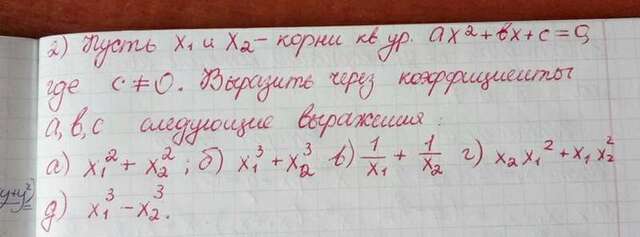 2) Пусть x₁ и x₂ - корни кв. ур. ax² + bx + c = 0,
где c ≠ 0. Выразить через коэффициенты
a, b, c следующие выражения:
а) x₁² + x₂²; б) x₁³ + x₂³ в) 1/x₁ + 1/x₂ г) x₂x₁² + x₁x₂²
y+y²)
д) x₁³ - x₂³.